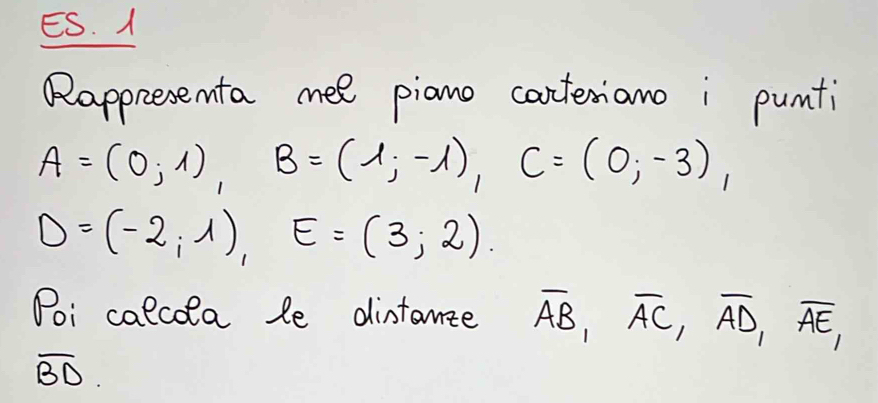 ES. 1
Rappresenta nel piano cartesiano i punti
A = (0; 1), B = (1; -1), C = (0; -3),
D = (-2; 1), E = (3; 2).
Poi calcola le distanze A̅B̅, A̅C̅, A̅D̅, A̅E̅,
B̅D̅.